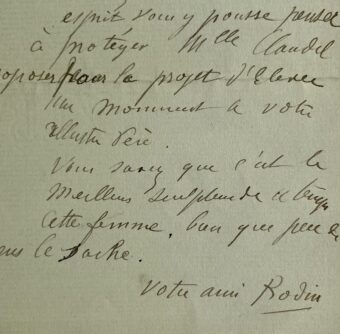 esprit vous y pousse pensez
à protéger Mlle Claudel
oposer pour le projet d'Elever
un monument a votre
illustre Père.
Vous savez que c'est le
meilleur sculpteur de temps
cette femme, bien que peu de
ns le sache.
Votre ami Rodin